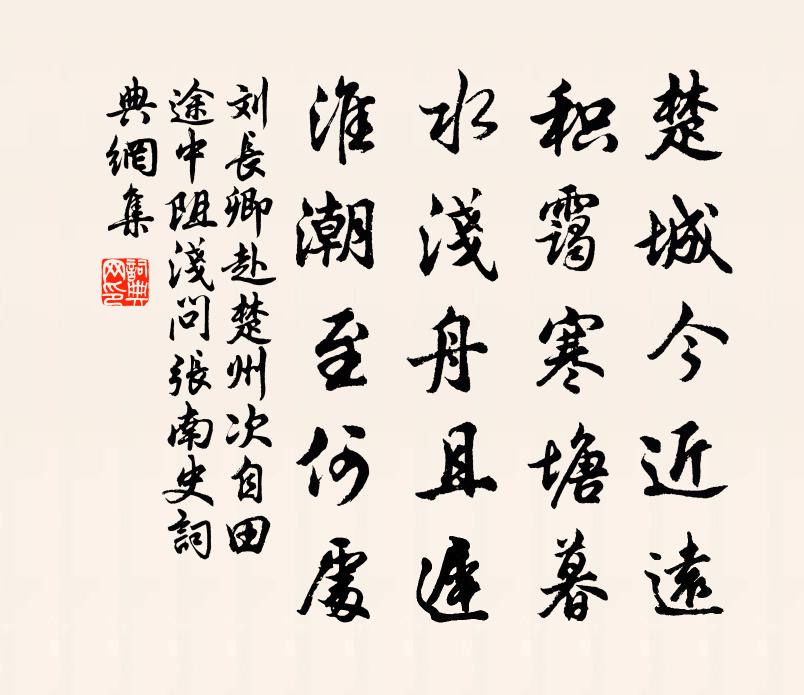 楚城今近遠
积靄寒塘暮
水淺舟且遲
淮潮至何處
刘長卿赴楚州次自田
途中阻淺問張南史詞
典網集
詞典网印